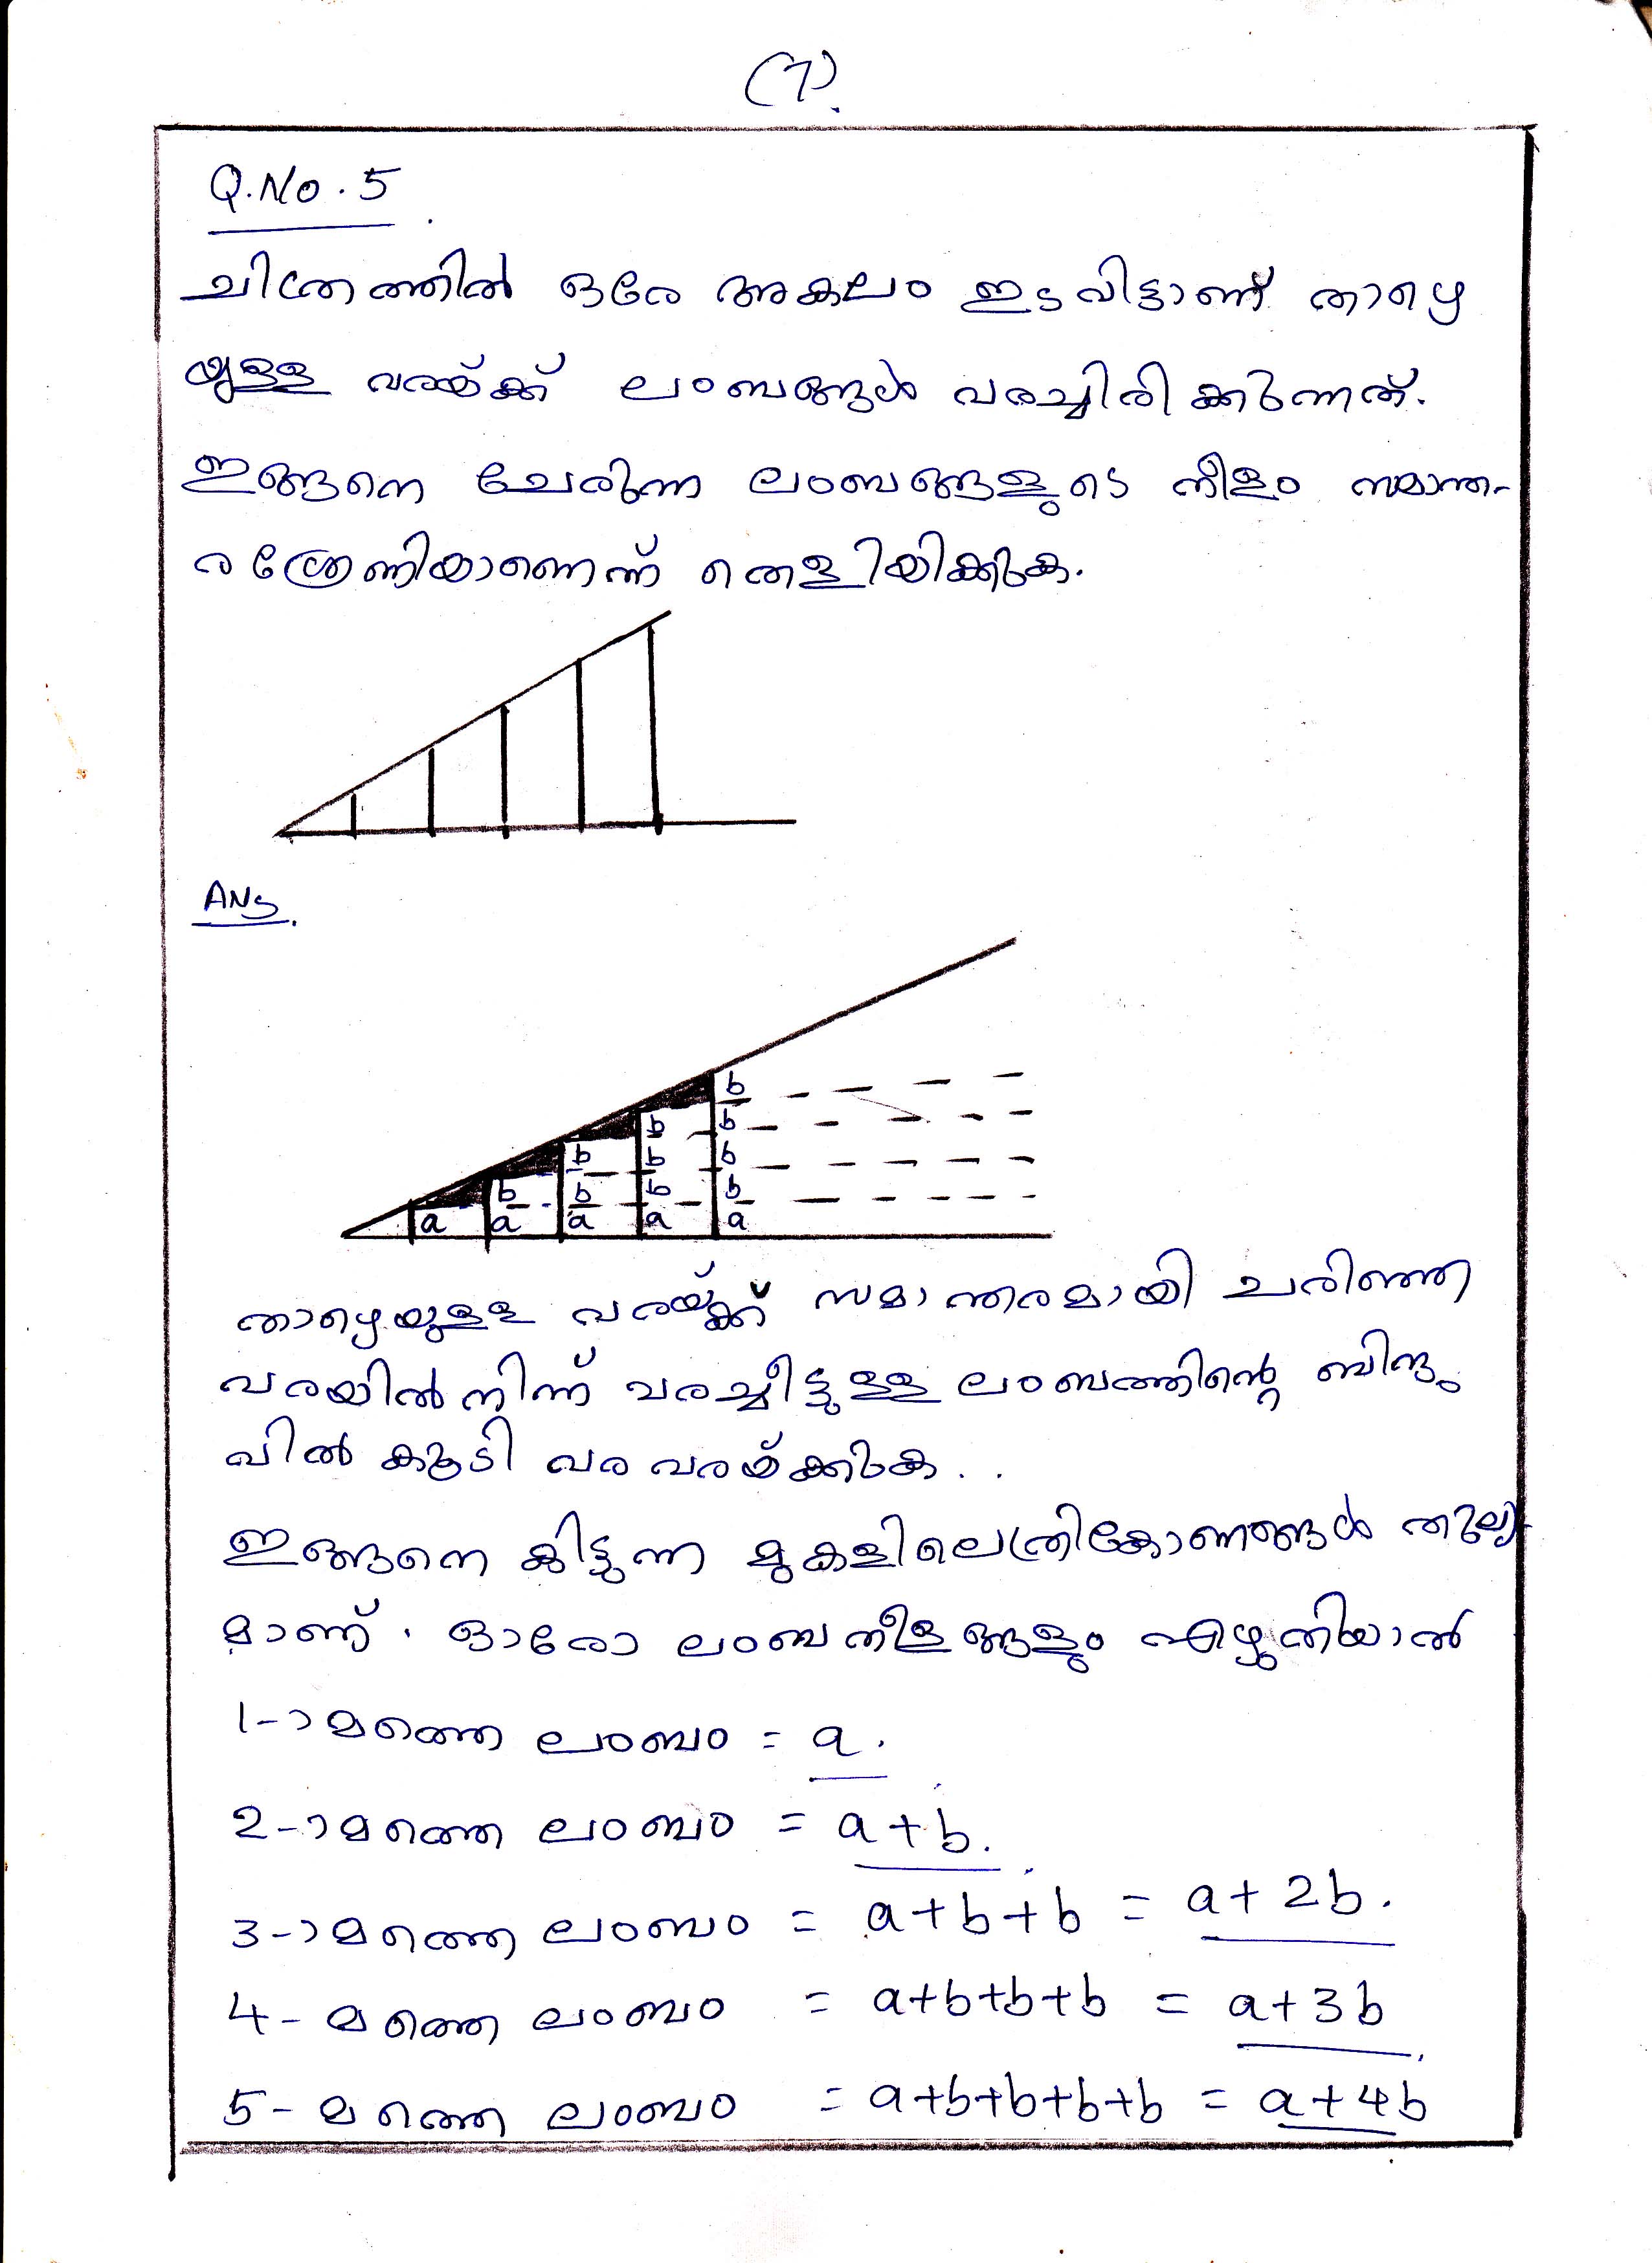 (7).
Q.No.5
ചിത്രത്തിൽ ഒരേ അകലം ഇടവിട്ടാണ് താഴെ
യുള്ള വരയ്ക്ക് ലംബങ്ങൾ വരച്ചിരിക്കുന്നത്.
ഇങ്ങനെ ചേരുന്ന ലംബങ്ങളുടെ നീളം സമാന്ത-
രശ്രേണിയാണെന്ന് തെളിയിക്കുക.
ANS.
b
b b
b b b
b b b b
a a a a a
താഴെയുള്ള വരയ്ക്ക് സമാന്തരമായി ചരിഞ്ഞ
വരയിൽ നിന്ന് വരച്ചിട്ടുള്ള ലംബത്തിന്റെ ബിന്ദു
വിൽ കൂടി വര വരയ്ക്കുക..
ഇങ്ങനെ കിട്ടുന്ന മുകളിലെ ത്രികോണങ്ങൾ തുല്യ
മാണ്. ഓരോ ലംബനീളങ്ങളും എഴുതിയാൽ
1-ാമത്തെ ലംബം = a.
2-ാമത്തെ ലംബം = a+b.
3-ാമത്തെ ലംബം = a+b+b = a+2b.
4-മത്തെ ലംബം = a+b+b+b = a+3b
5-മത്തെ ലംബം = a+b+b+b+b = a+4b